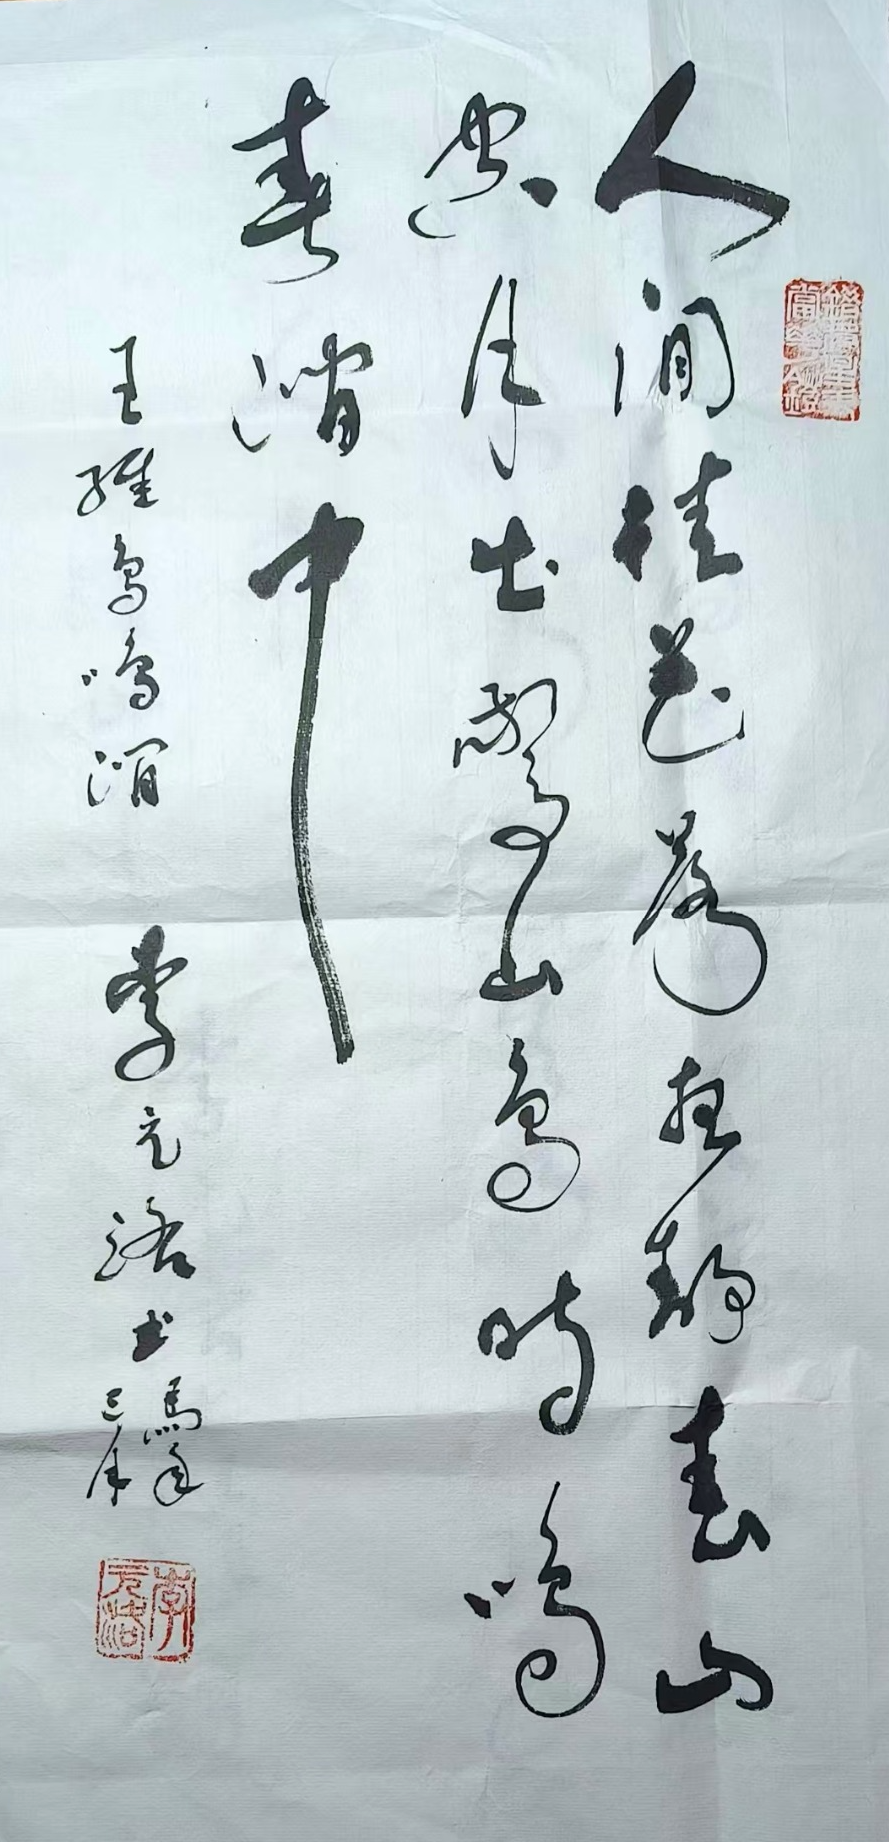 人闲桂花落夜静春山
空月出惊山鸟时鸣
春涧中
王維鸟鸣涧 李元洛书 马年
李元洛